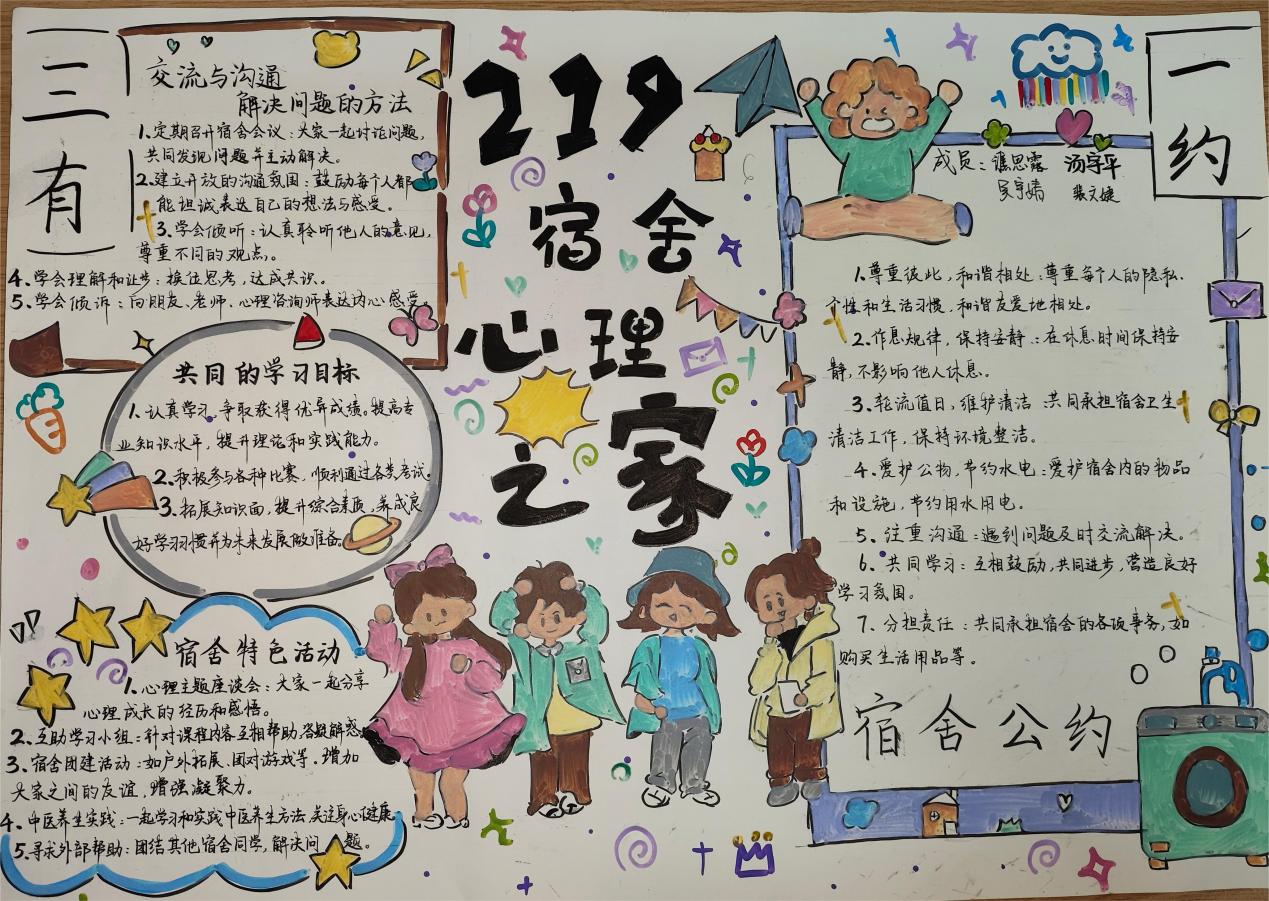 三有
交流与沟通
解决问题的方法
1.定期召开宿舍会议：大家一起讨论问题，
共同发现问题并主动解决。
2.建立开放的沟通氛围：鼓励每个人都
能坦诚表达自己的想法与感受。
3.学会倾听：认真聆听他人的意见，
尊重不同的观点。
4.学会理解和让步：换位思考，达成共识。
5.学会倾诉：向朋友、老师、心理咨询师表达内心感受。
共同的学习目标
1.认真学习，争取获得优异成绩。提高专
业知识水平，提升理论和实践能力。
2.积极参与各种比赛，顺利通过各类考试。
3.拓展知识面，提升综合素质，养成良
好学习习惯并为未来发展做准备。
宿舍特色活动
1.心理主题座谈会：大家一起分享
心理成长的经历和感悟。
2.互助学习小组：针对课程内容互相帮助，答疑解惑
3.宿舍团建活动：如户外拓展、团对游戏等，增加
大家之间的友谊，增强凝聚力。
4.中医养生实践：一起学习和实践中医养生方法，关注身心健康。
5.寻求外部帮助：团结其他宿舍同学，解决问题。
219
宿舍
心理
之家
一约
成员： 思 汤宇平
吴宇婧
1.尊重彼此，和谐相处：尊重每个人的隐私、
个性和生活习惯，和谐友爱地相处。
2.作息规律，保持安静：在休息时间保持安
静，不影响他人休息。
3.轮流值日，维护清洁 共同承担宿舍卫生
清洁工作，保持环境整洁。
4.爱护公物，节约水电：爱护宿舍内的物品
和设施，节约用水用电。
5.注重沟通：遇到问题及时交流解决。
6.共同学习：互相鼓励，共同进步，营造良好
学习氛围。
7.分担责任：共同承担宿舍的各项事务，如
购买生活用品等。
宿舍公约